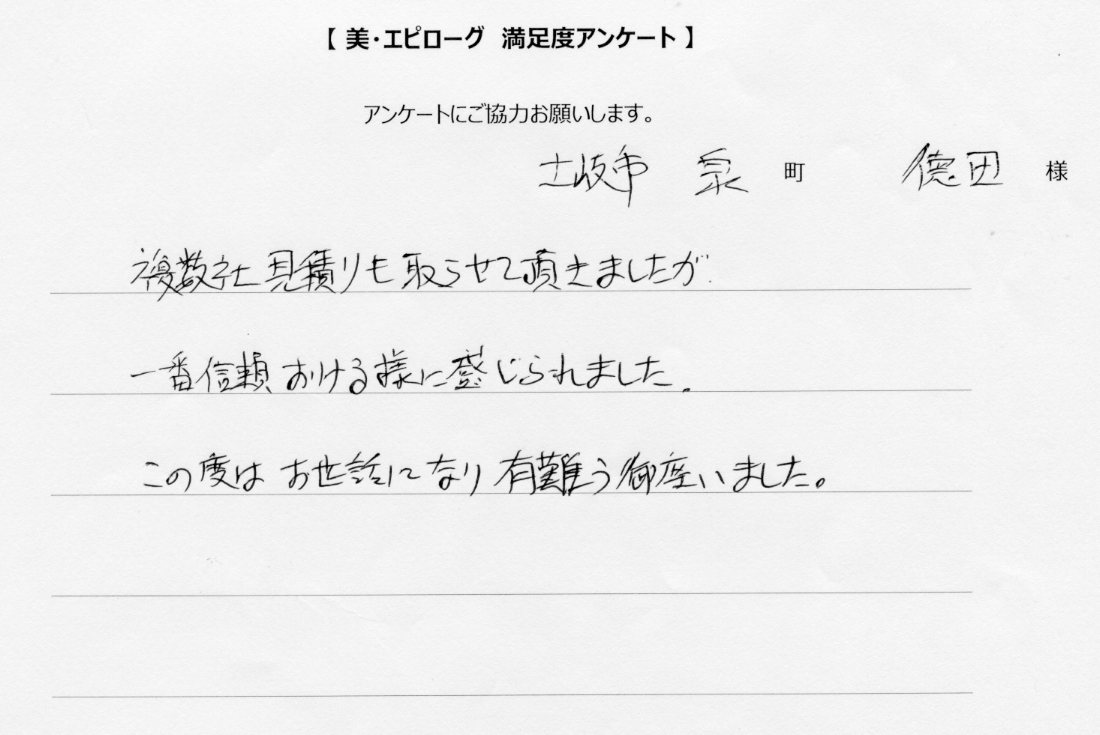 【 美・エピローグ 満足度アンケート 】
アンケートにご協力お願いします。
土岐市 泉 町 徳田 様
複数社見積りも取らせて頂きましたが
一番信頼おける様に感じられました。
この度は お世話になり 有難う御座いました。